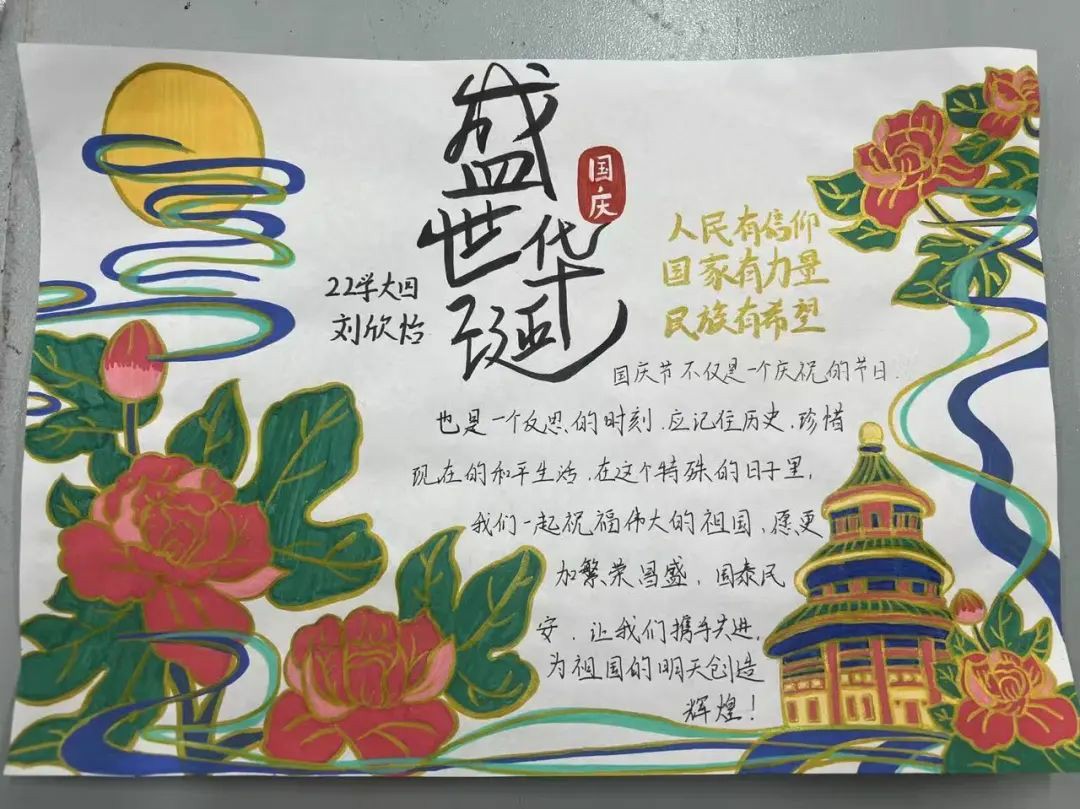 盛世华诞
国庆
22学大四
刘欣怡
人民有信仰
国家有力量
民族有希望
国庆节不仅是一个庆祝的节日.
也是一个反思的时刻.应记住历史,珍惜
现在的和平生活.在这个特殊的日子里,
我们一起祝福伟大的祖国,愿更
加繁荣昌盛,国泰民
安.让我们携手共进,
为祖国的明天创造
辉煌!